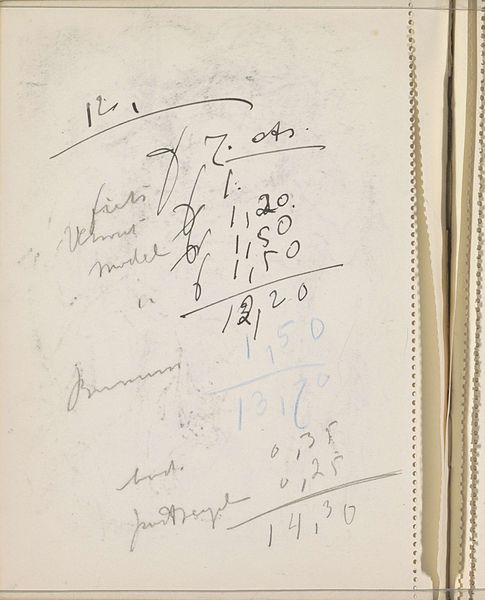 12,
f 7. cts.
fiets f 1.
f 1,20.
model f 1,50
" f 1,50
12,20
1,50
13,70
0,35
postzegel 0,25
14,30